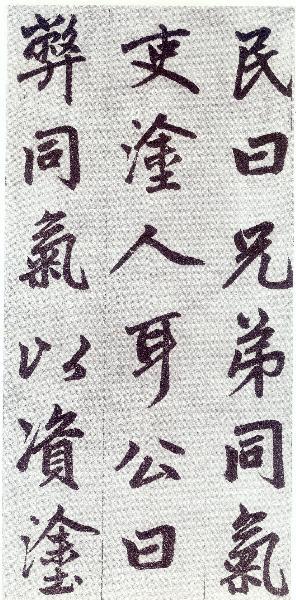 民曰兄弟同氣
吏塗人耳公曰
弊同氣以資塗